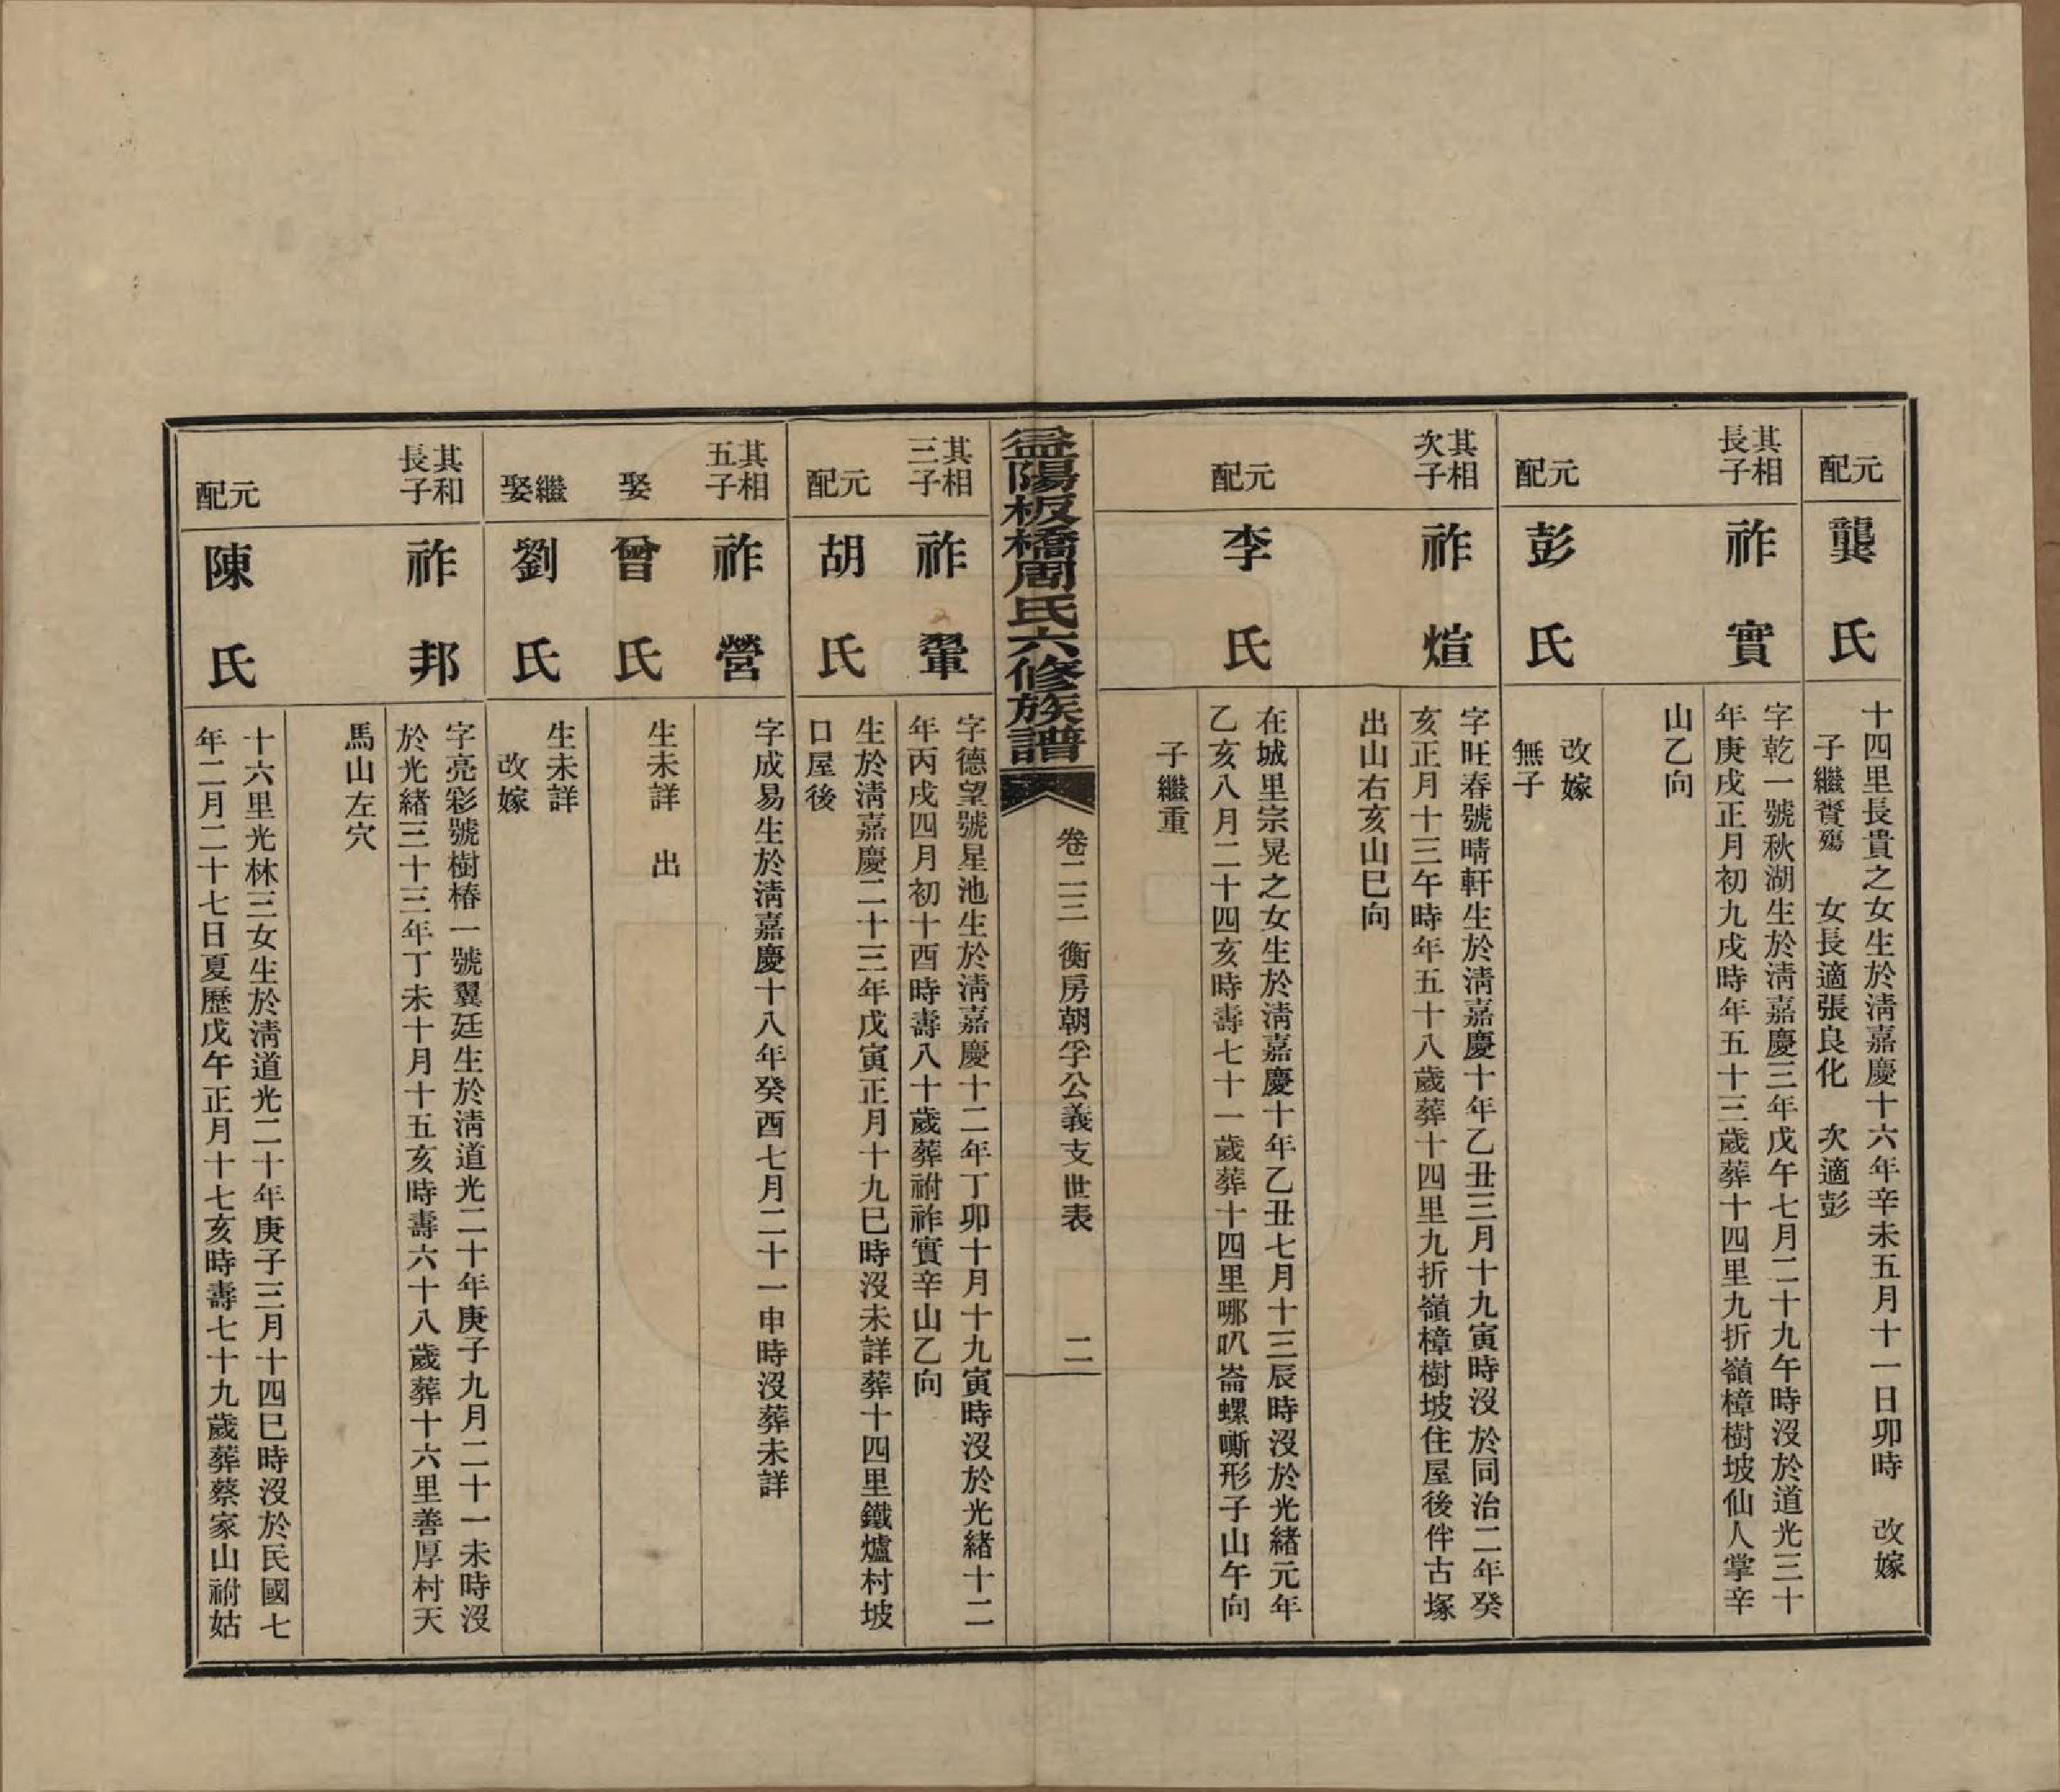 元配
龔氏
十四里長貴之女生於淸嘉慶十六年辛未五月十一日卯時　改嫁
子繼賚殤　女長適張良化　次適彭
其相長子
祚實
字乾一號秋湖生於淸嘉慶三年戊午七月二十九午時沒於道光三十
年庚戌正月初九戌時年五十三歲葬十四里九折嶺樟樹坡仙人掌辛
山乙向
元配
彭氏
改嫁
無子
其相次子
祚煊
字旺春號晴軒生於淸嘉慶十年乙丑三月十九寅時沒於同治二年癸
亥正月十三午時年五十八歲葬十四里九折嶺樟樹坡住屋後伴古塚
出山右亥山巳向
元配
李氏
在城里宗晃之女生於淸嘉慶十年乙丑七月十三辰時沒於光緒元年
乙亥八月二十四亥時壽七十一歲葬十四里哪叭崙螺嘶形子山午向
子繼重
益陽板橋周氏六修族譜
卷二三　衡房朝孚公義支世表
二
其相三子
祚翬
字德望號星池生於淸嘉慶十二年丁卯十月十九寅時沒於光緒十二
年丙戌四月初十酉時壽八十歲葬祔祚實辛山乙向
元配
胡氏
生於淸嘉慶二十三年戊寅正月十九巳時沒未詳葬十四里鐵爐村坡
口屋後
其相五子
祚營
字成易生於淸嘉慶十八年癸酉七月二十一申時沒葬未詳
娶
曾氏
生未詳　出
繼娶
劉氏
生未詳
改嫁
其和長子
祚邦
字亮彩號樹椿一號翼廷生於淸道光二十年庚子九月二十一未時沒
於光緒三十三年丁未十月十五亥時壽六十八歲葬十六里善厚村天
馬山左穴
元配
陳氏
十六里光林三女生於淸道光二十年庚子三月十四巳時沒於民國七
年二月二十七日夏歷戊午正月十七亥時壽七十九歲葬蔡家山祔姑